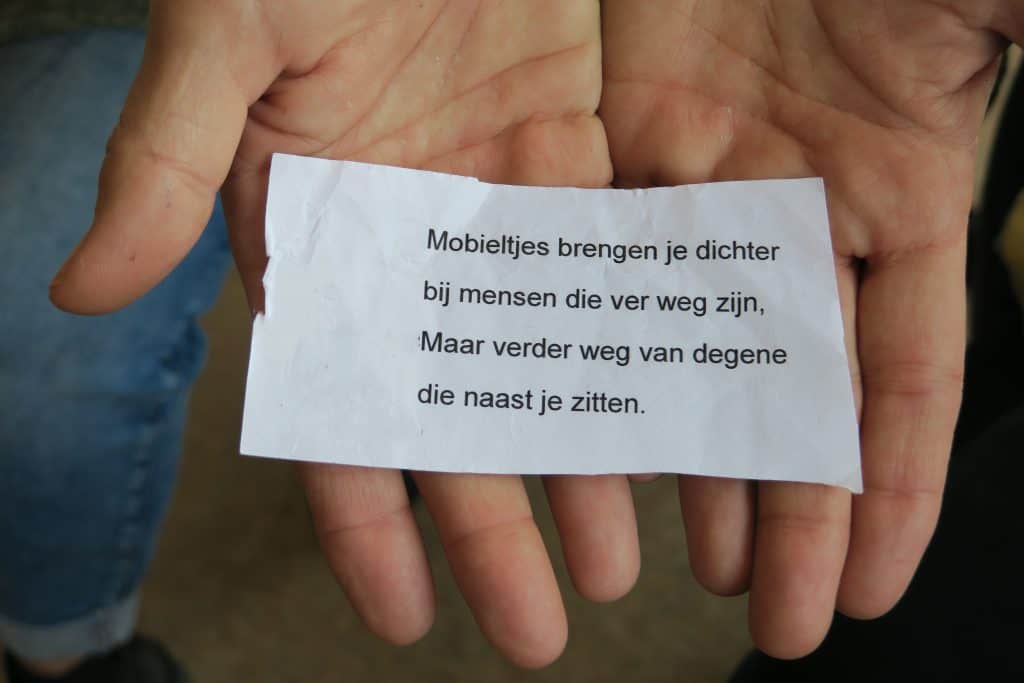 Mobieltjes brengen je dichter
bij mensen die ver weg zijn,
Maar verder weg van degene
die naast je zitten.